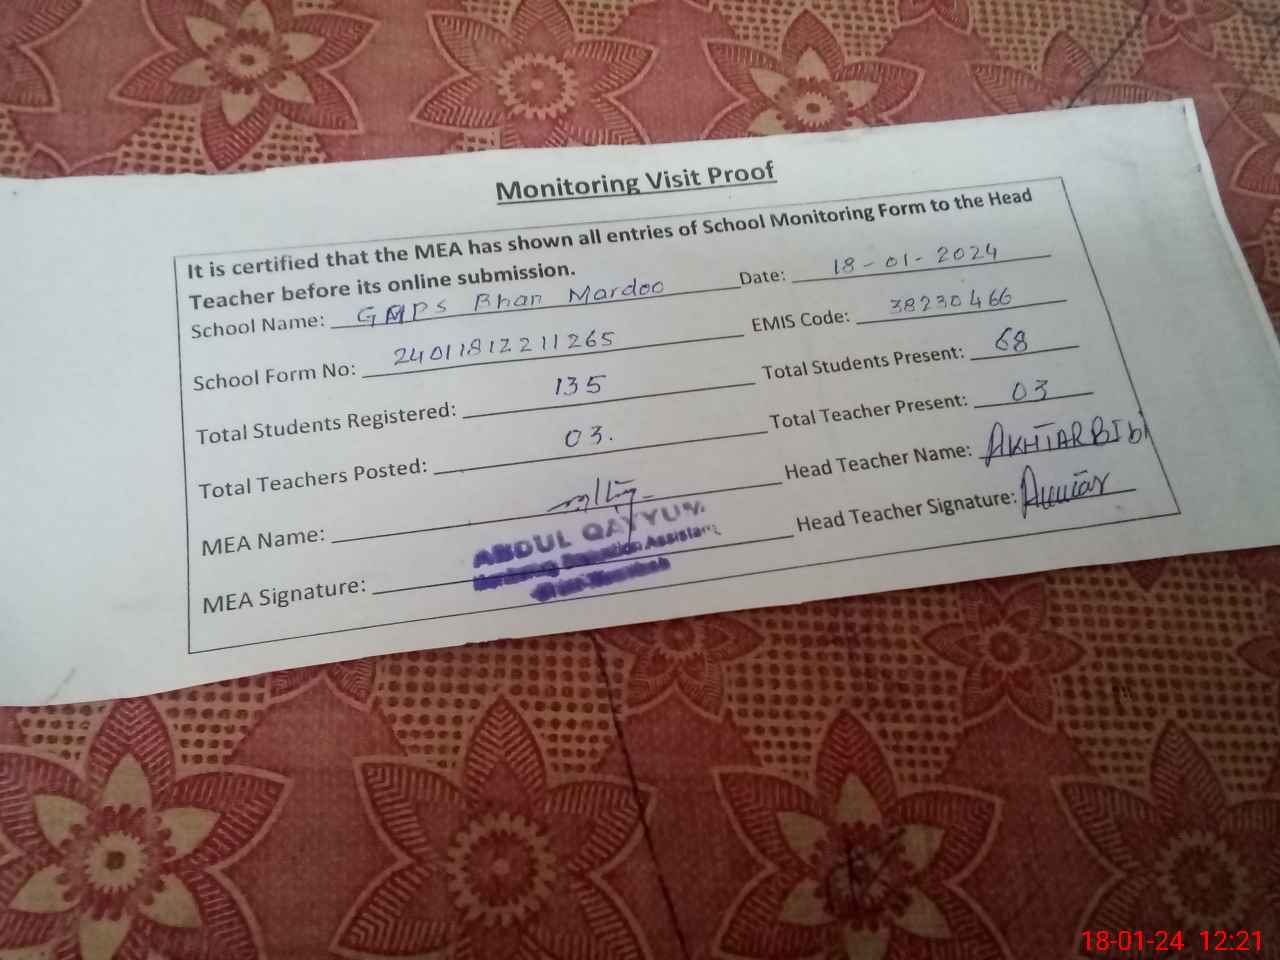 Monitoring Visit Proof
It is certified that the MEA has shown all entries of School Monitoring Form to the Head
Teacher before its online submission.
School Name: GMPS Bhan Mardoo Date: 18-01-2024
School Form No: 24011812211265 EMIS Code: 38230466
Total Students Registered: 135 Total Students Present: 68
Total Teachers Posted: 03. Total Teacher Present: 03
MEA Name: Head Teacher Name: AKHTAR BIbi
MEA Signature: ABDUL QAYYUM Head Teacher Signature:
Assistant
18-01-24 12:21